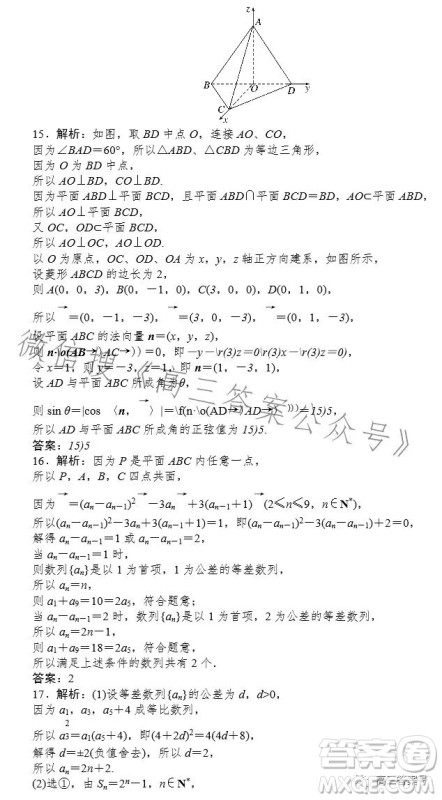 z
A
B
O
D
y
C
x
15. 解析：如图，取 BD 中点 O，连接 AO、CO，
因为∠BAD=60°，所以△ABD、△CBD 为等边三角形，
因为 O 为 BD 中点，
所以 AO⊥BD，CO⊥BD.
因为平面 ABD⊥平面 BCD，且平面 ABD∩平面 BCD=BD，AO⊂平面 ABD，
所以 AO⊥平面 BCD，
又 OC，OD⊂平面 BCD，
所以 AO⊥OC，AO⊥OD.
以 O 为原点，OC、OD、OA 为 x，y，z 轴正方向建系，如图所示，
设菱形 ABCD 的边长为 2，
则 A(0，0，3)，B(0，－1，0)，C(3，0，0)，D(0，1，0)，
所以→=(0，－1，－3)，→=(3，0，－3)，→=(0，1，－3)，
设平面 ABC 的法向量 n=(x，y，z)，
则 n·\o(AB→) AC→))=0，即 －y－\r(3)z=0\r(3)x－\r(3)z=0)，
令 x=1，则 y=－3，z=1，即 n=(1，－3，1)，
设 AD 与平面 ABC 所成角为θ，
则 sin θ=|cos〈n，→〉|=\f(n·\o(AD→) AD→)))=15)5，
所以 AD 与平面 ABC 所成角的正弦值为 15)5.
答案：15)5
16. 解析：因为 P 是平面 ABC 内任意一点，
所以 P，A，B，C 四点共面，
因为→=(aₙ－aₙ₋₁)²→－3aₙ→+3(aₙ₋₁+1)→(2≤n≤9，n∈N*)，
所以(aₙ－aₙ₋₁)²－3aₙ+3(aₙ₋₁+1)=1，即(aₙ－aₙ₋₁)²－3(aₙ－aₙ₋₁)+2=0，
解得 aₙ－aₙ₋₁=1 或 aₙ－aₙ₋₁=2，
当 aₙ－aₙ₋₁=1 时，
则数列{aₙ}是以 1 为首项，1 为公差的等差数列，
所以 aₙ=n，
则 a₁+a₉=10=2a₅，符合题意；
当 aₙ－aₙ₋₁=2 时，数列{aₙ}是以 1 为首项，2 为公差的等差数列，
所以 aₙ=2n－1，
则 a₁+a₉=18=2a₅，符合题意，
所以满足上述条件的数列共有 2 个.
答案：2
17. 解析：(1)设等差数列{aₙ}的公差为 d，d>0，
因为 a₁，a₃，a₅+4 成等比数列，
所以 a₃²=a₁(a₅+4)，即(4+2d)²=4(4d+8)，
解得 d=±2(负值舍去)，所以 d=2，
所以 aₙ=2n+2.
(2)选①，由 Sₙ=2ⁿ－1，n∈N*，
微信搜《高三答案公众号》
答案圈